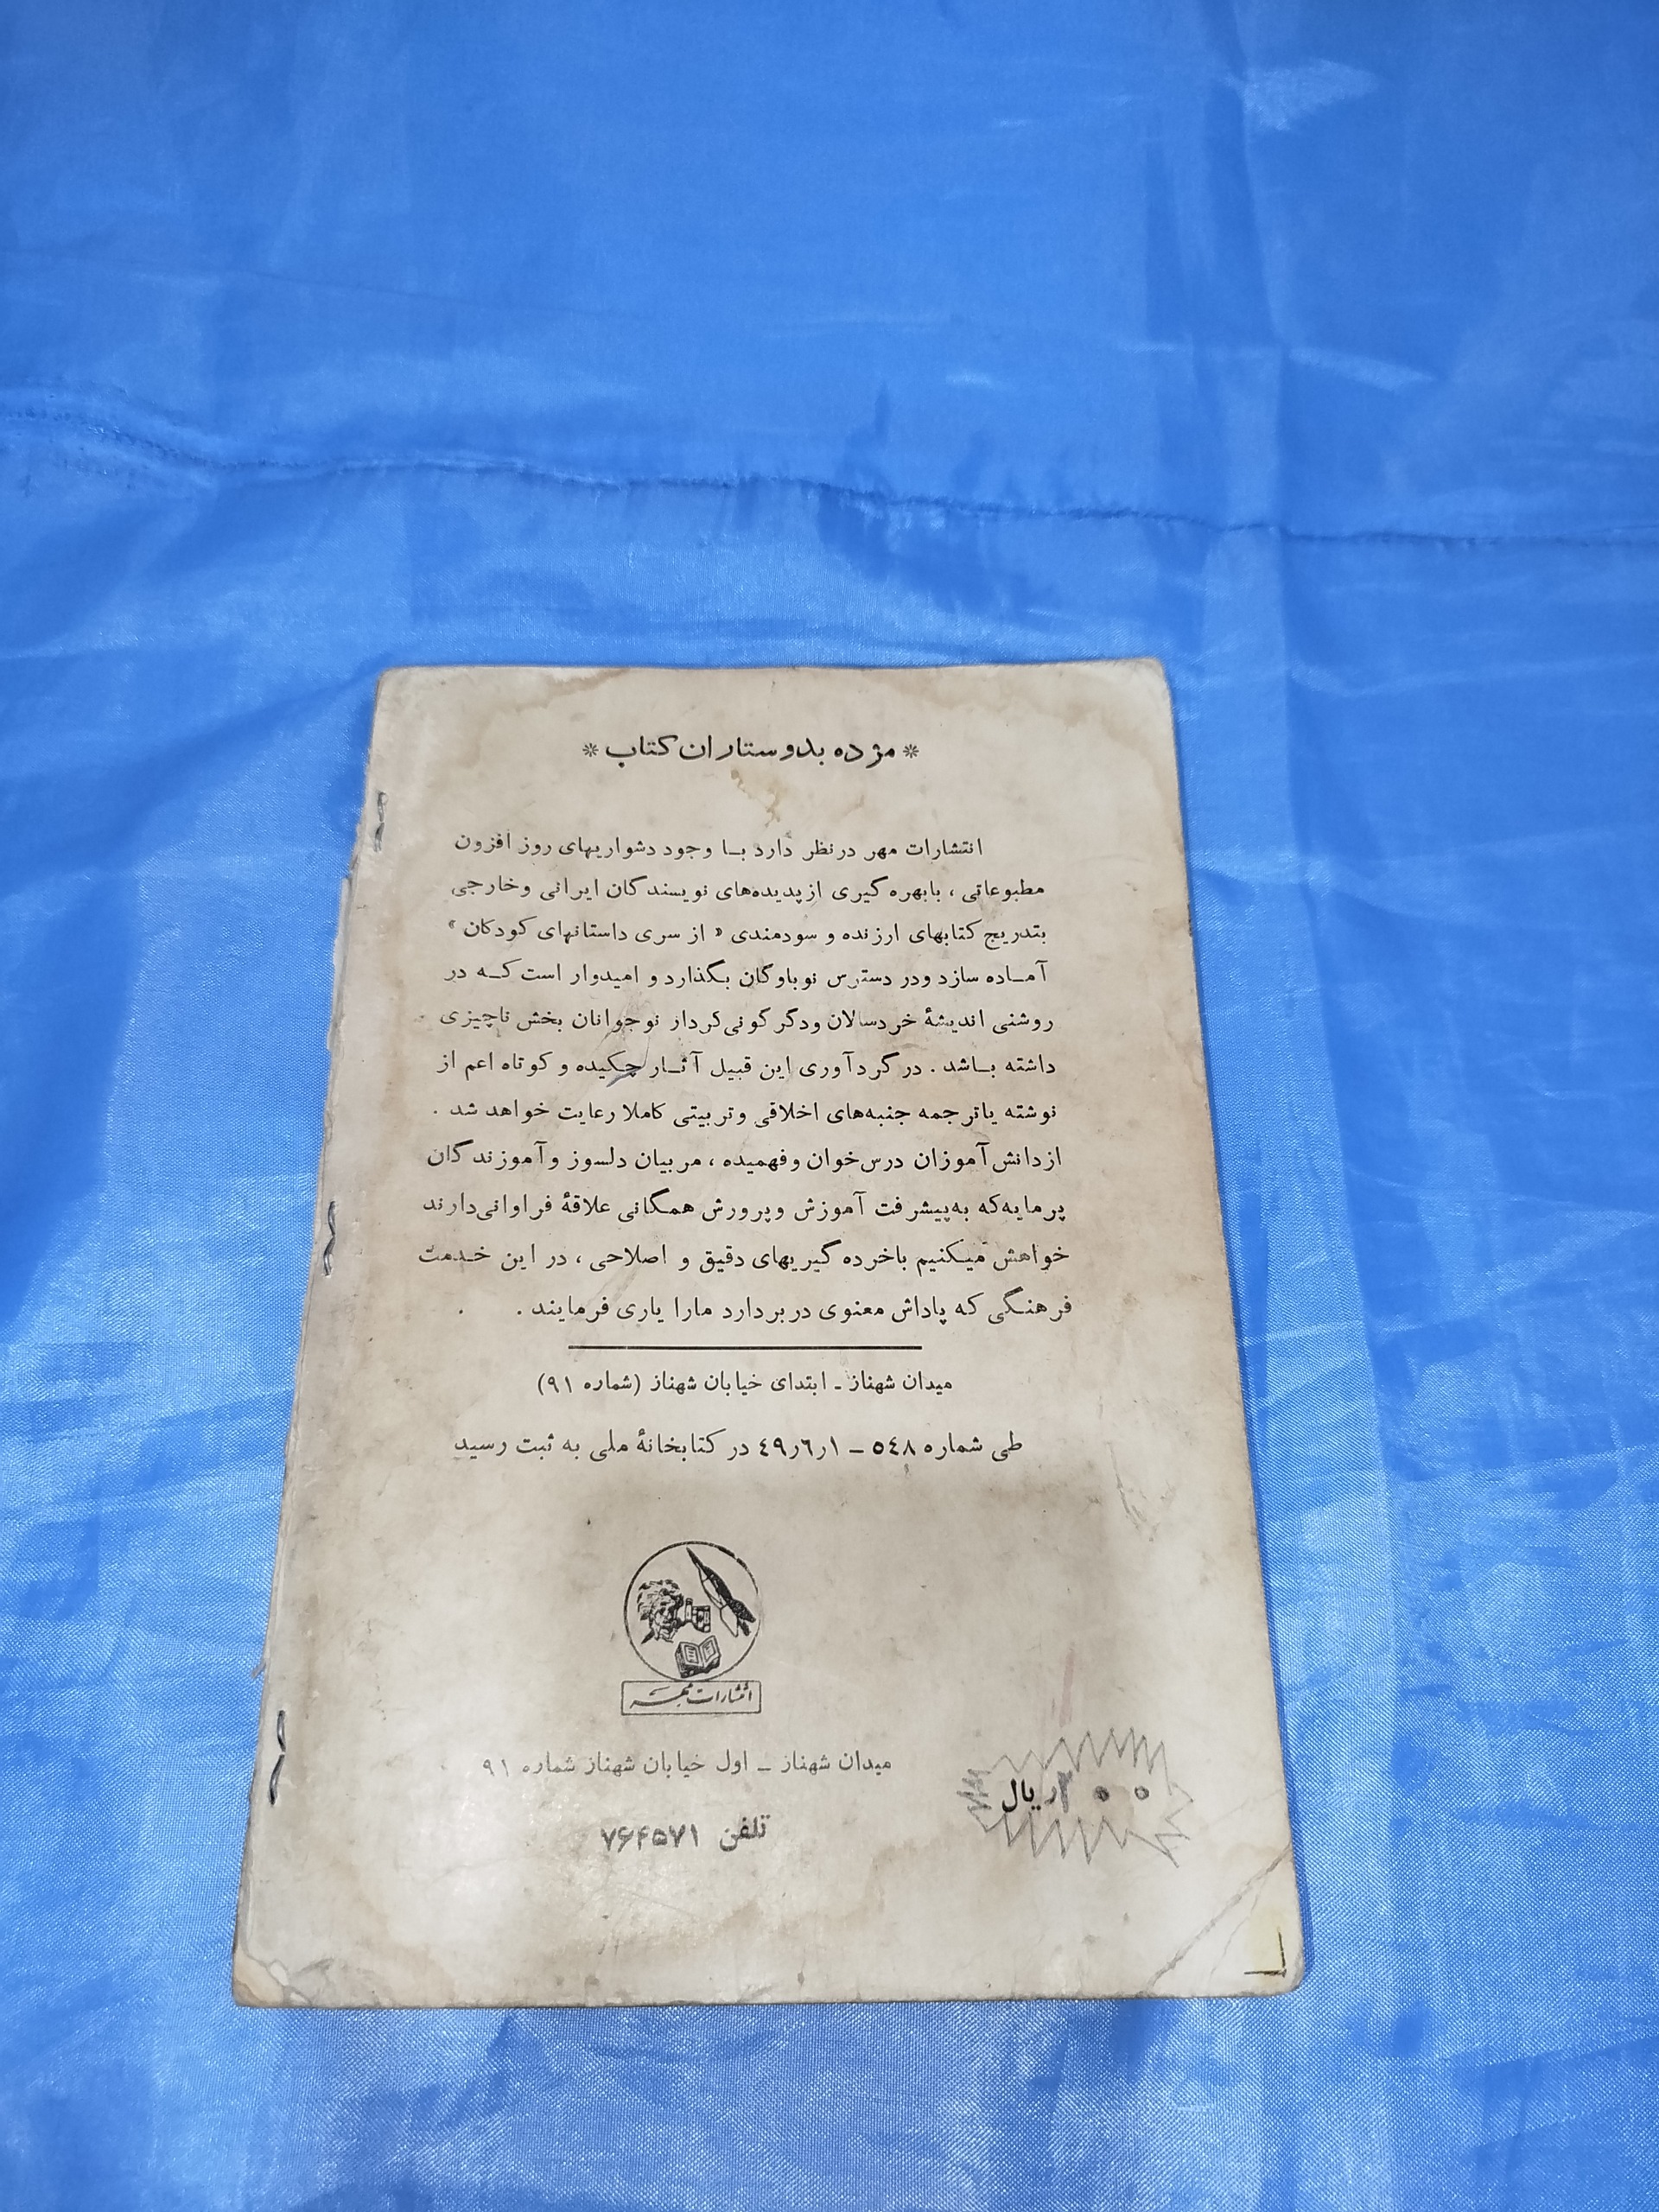 * مژده بدوستاران کتاب *
انتشارات مهر درنظر دارد بـا وجود دشواریهای روز افزون
مطبوعاتی ، بابهره گیری ازپدیده‌های نویسندگان ایرانی وخارجی
بتدریج کتابهای ارزنده و سودمندی « از سری داستانهای کودکان »
آمـاده سازد ودر دسترس نوباوگان بگذارد و امیدوار است کـه در
روشنی اندیشهٔ خردسالان ودگرگونی‌کردار نوجوانان بخش ناچیزی
داشته بـاشد . درگردآوری این قبیل آثـار چکیده و کوتاه اعم از
نوشته یاترجمه جنبه‌های اخلاقی وتربیتی کاملا رعایت خواهد شد .
ازدانش‌آموزان درس‌خوان وفهمیده ، مربیان دلسوز وآموزندگان
پرمایه‌که به‌پیشرفت آموزش وپرورش همگانی علاقهٔ فراوانی‌دارند
خواهش میکنیم باخرده‌گیریهای دقیق و اصلاحی ، در این خـدمت
فرهنگی که پاداش معنوی دربردارد مارا یاری فرمایند .
میدان شهناز ـ ابتدای خیابان شهناز (شماره ۹۱)
طی شماره ٥٤٨ – ٤٩٫٦٫١ در کتابخانهٔ ملی به ثبت رسید
انتشارات مهر
میدان شهناز – اول خیابان شهناز شماره ۹۱
ریال
تلفن ۷۶۴۵۷۱